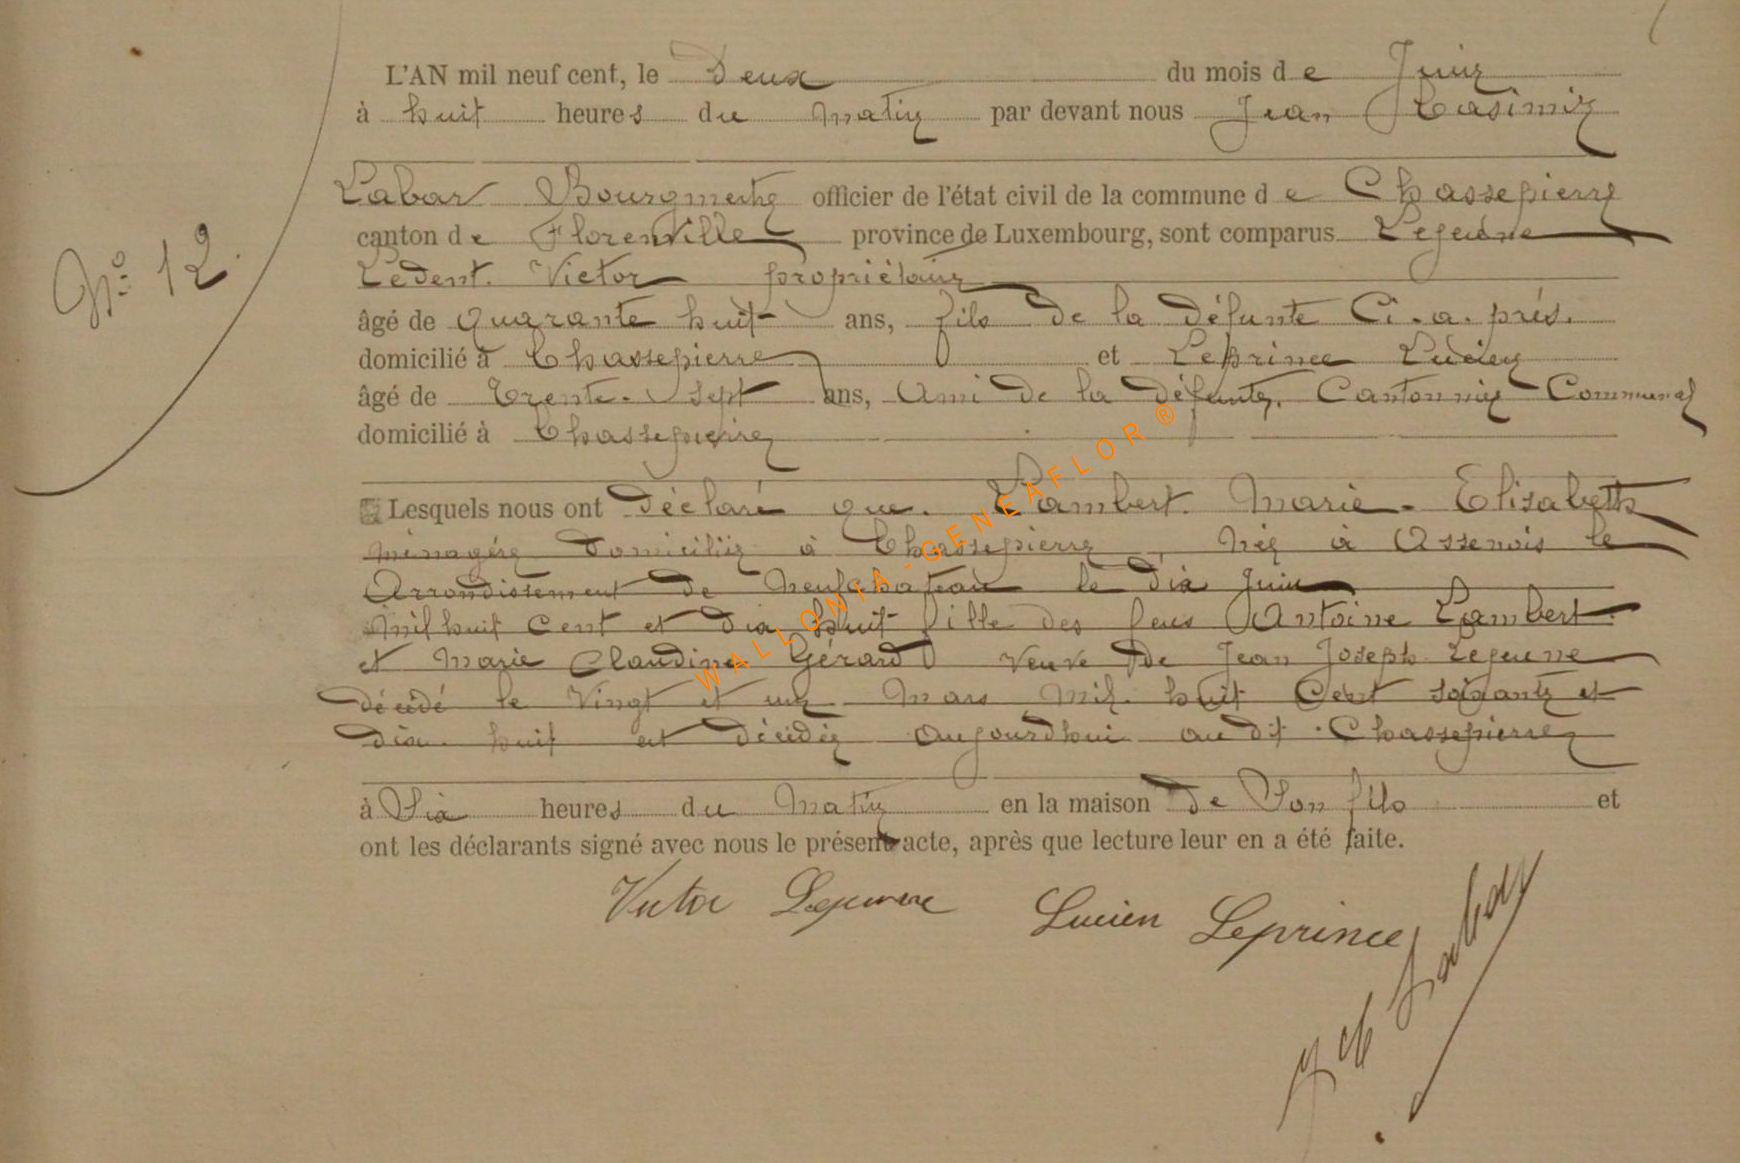 Nº 12.
L'AN mil neuf cent, le Deux du mois de Juin
à huit heures du matin par devant nous Jean Casimir
Labar Bourgmestre officier de l'état civil de la commune de Chassepierre
canton de Florenville province de Luxembourg, sont comparus Lejeune
Ledent. Victor propriétaire
âgé de quarante huit ans, fils de la défunte Ci.a.prés.
domicilié à Chassepierre et Leprince Lucien
âgé de Trente-Sept ans, Ami de la défunte, Cantonnier Communal
domicilié à Chassepierre
Lesquels nous ont Déclaré que. Lambert. Marie. Elisabeth
ménagère domiciliée à Chassepierre, née à Assenois le
Arrondissement de Neufchateau le dix Juin
Mil huit Cent et dix huit fille des feus Antoine Lambert.
et Marie Claudine Gérard Veuve de Jean Joseph Lejeune
décédé le Vingt et un Mars Mil. huit Cent soixante et
dix. huit est décédée aujourdhui audit Chassepierre
à Six heures du Matin en la maison de Son fils et
ont les déclarants signé avec nous le présent acte, après que lecture leur en a été faite.
Victor Lejeune Lucien Leprince
Labar
WALLONIA-GENEAFLOR®